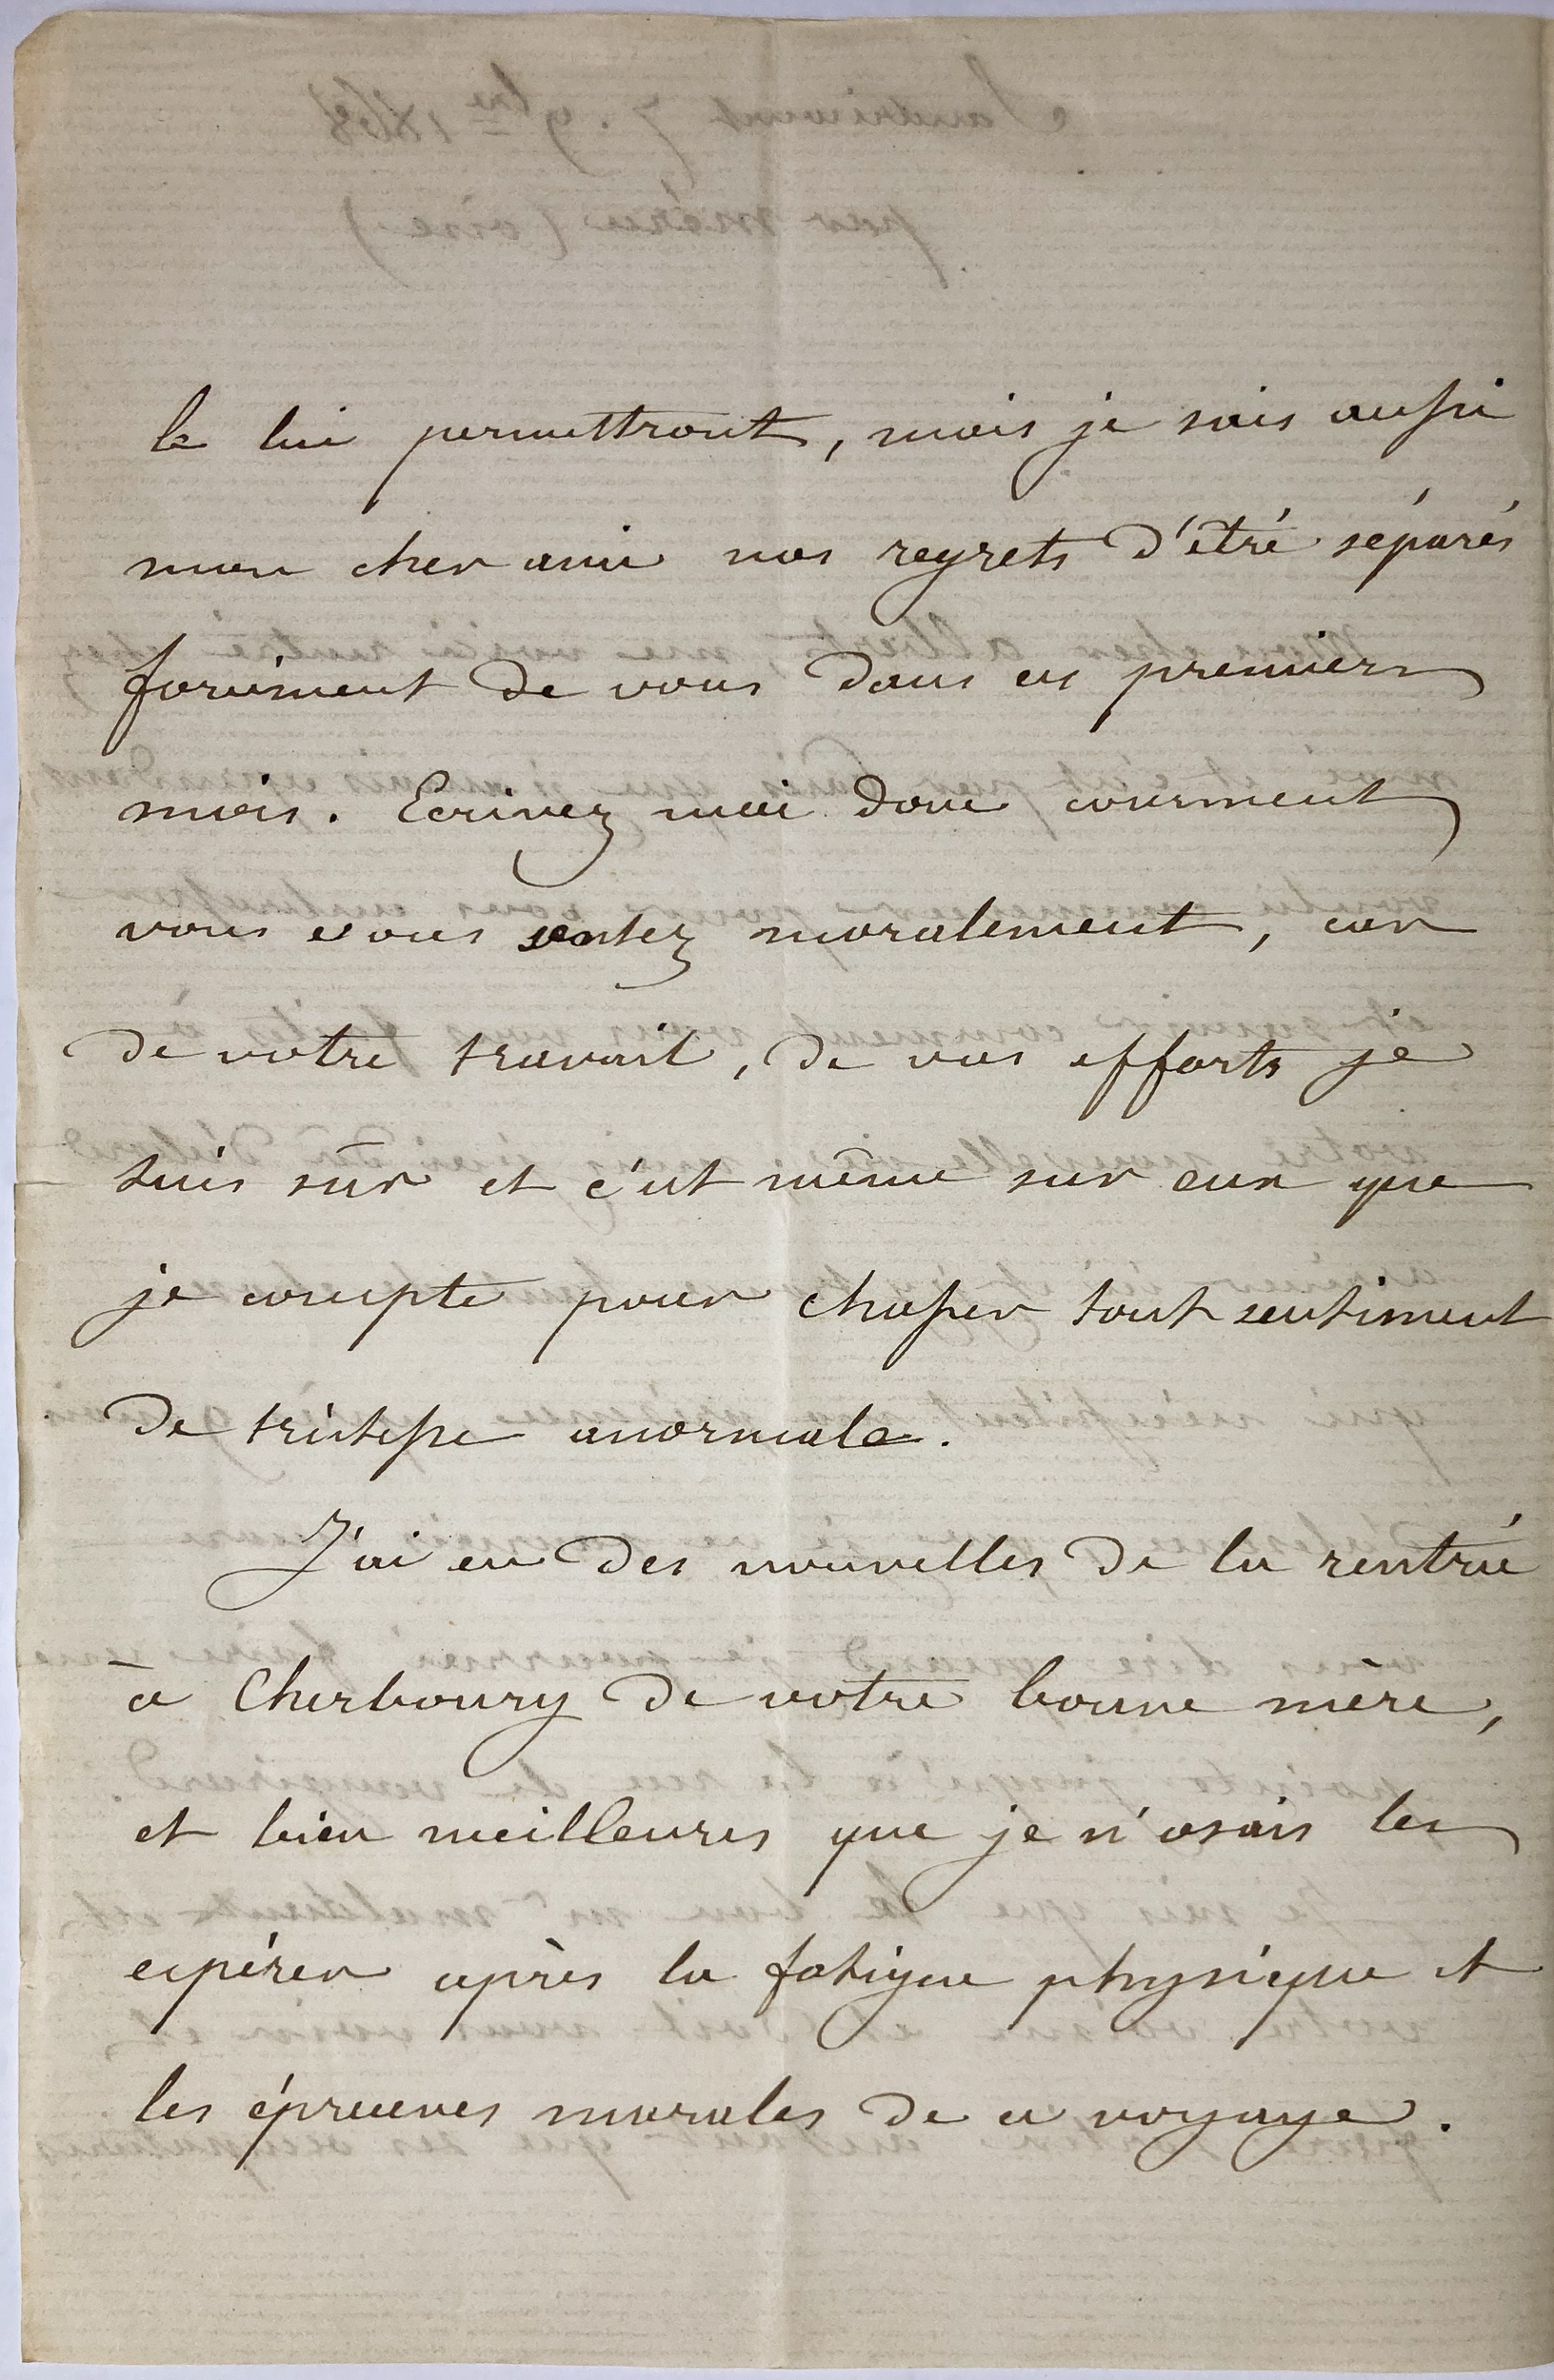 le lui permettront, mais je sais aussi
mon cher ami nos regrets d'être séparés
forcément de vous dans ces premiers
mois. Ecrivez moi donc comment
vous vous sentez moralement, car
de votre travail, de vos efforts je
suis sûr et c'est même sur eux que
je compte pour chasser tout sentiment
de tristesse anormale.
J'ai eu des nouvelles de la rentrée
à Cherbourg de votre bonne mère,
et bien meilleures que je n'osais les
espérer après la fatigue physique et
les épreuves morales de ce voyage.